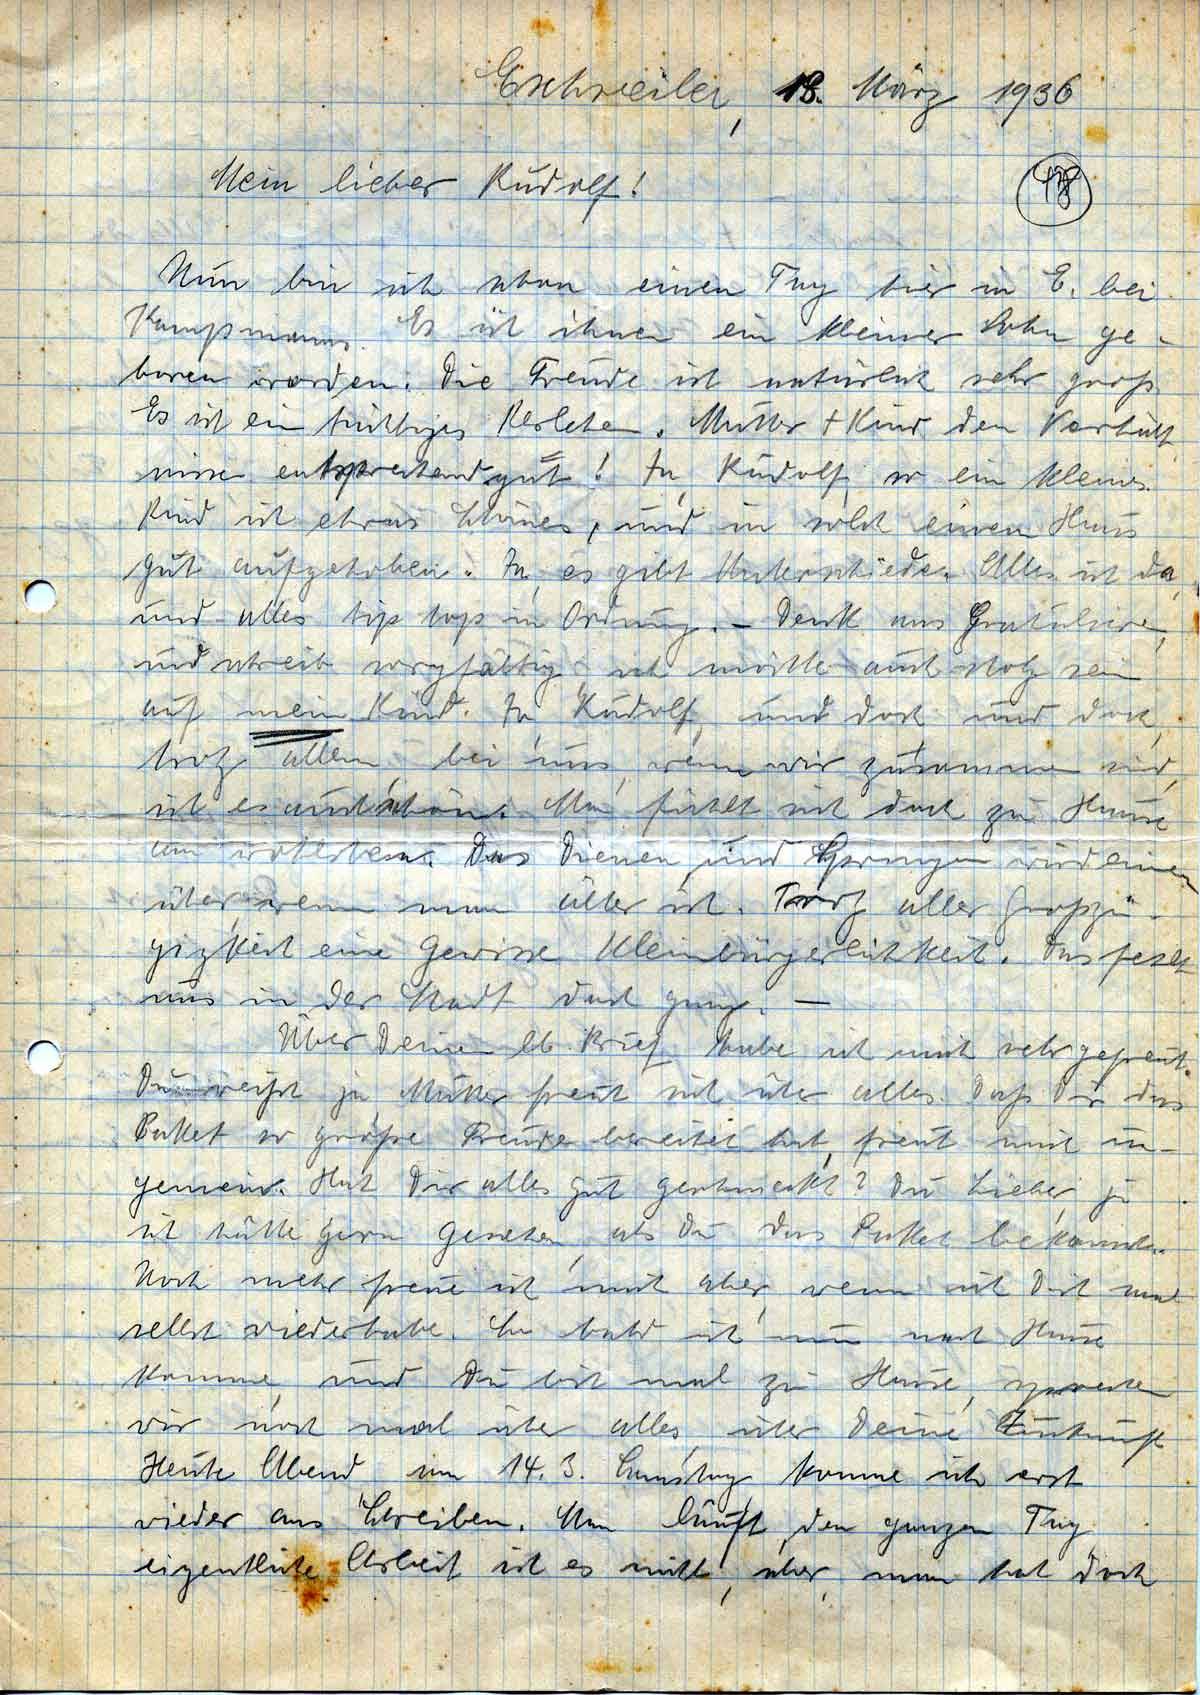 Eschweiler, 18. März 1936
Mein lieber Rudolf!
Nun bin ich schon einen Tag hier in E. bei
Kampmanns. Es ist ihnen ein kleiner Sohn ge-
boren worden. Die Freude ist natürlich sehr groß.
Es ist ein Kerlchen. Mutter + Kind den Verhält-
nissen entsprechend gut! Ja, Rudolf, so ein kleines
Kind ist etwas Schönes, und in solch einem Haus
gut aufgehoben. Ja, es gibt Unterschiede. Alles ist da,
und alles tip top in Ordnung. – Denk ans Gratulieren,
und schreib sorgfältig, ich möchte auch stolz sein
auf mein Kind. Ja, Rudolf, und doch und doch,
trotz allem bei uns, wenn wir zusammen sind,
ist es auch schön. Man fühlt sich doch zu Hause
am wohlsten. Das Dienen und Springen wird einem
über, wenn man älter ist. Trotz aller Großzü-
gigkeit eine gewisse Kleinbürgerlichkeit. Das fehlt
uns in der Stadt doch ganz. –
Über Deinen lb. Brief habe ich mich sehr gefreut.
Du weißt ja, Mutter freut sich über alles. Daß Dir das
Paket so große Freude bereitet hat, freut mich un-
gemein. Hat Dir alles gut geschmeckt? Du Lieber, ja
ich hätte gern gesehen, als Du das Paket bekamst.
Noch mehr freue ich mich aber, wenn ich Dich mal
selbst wiederhabe. So bald ich nun nach Hause
komme, und Du bist mal zu Hause, sprechen
wir noch mal über alles, über Deine Zukunft
Heute Abend am 14. 3. Samstag komme ich erst
wieder ans Schreiben. Man läuft den ganzen Tag
eigentliche Arbeit ist es nicht, aber, man hat doch